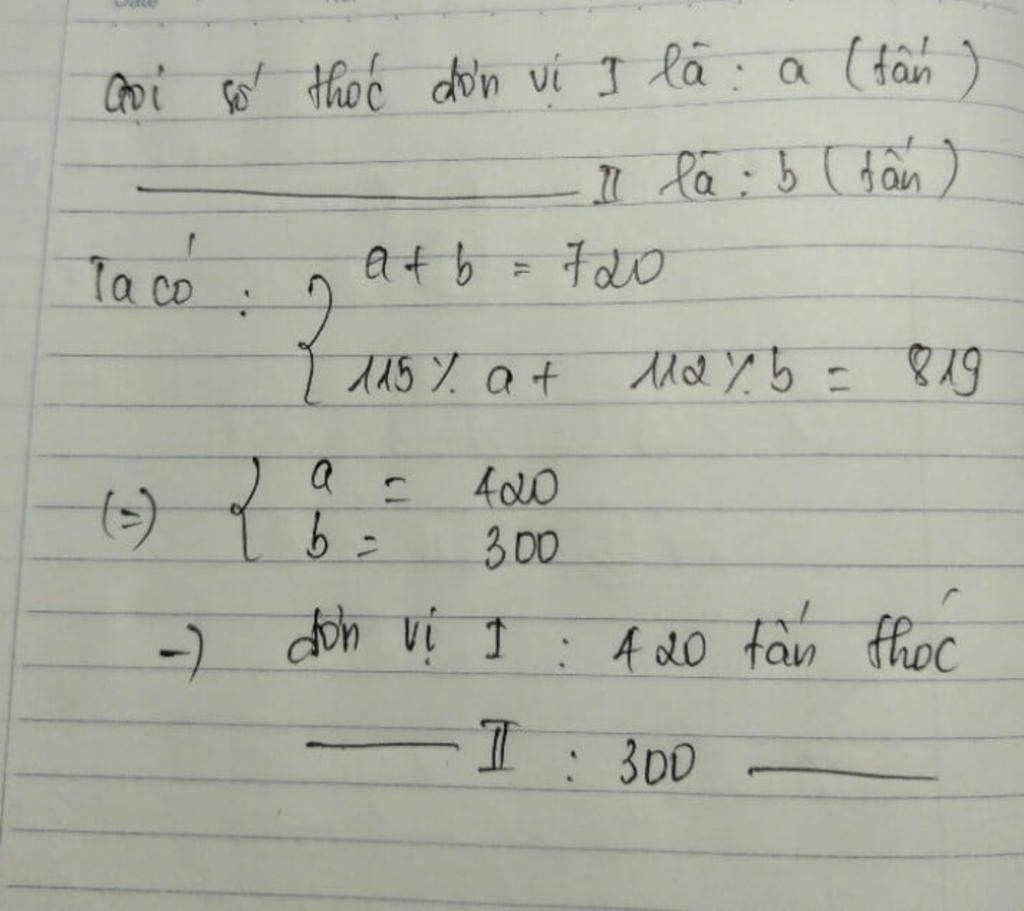 Gọi số thóc đơn vị I là : a (tấn)
II là : b (tấn)
Ta có : { a + b = 720
115% a + 112% b = 819
(=) { a = 420
b = 300
-) đơn vị I : 420 tấn thóc
II : 300